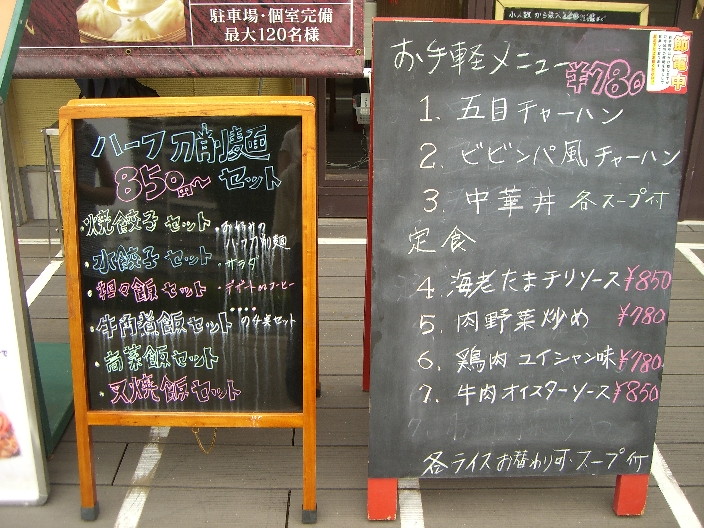 駐車場・個室完備
最大120名様
ハーフ刀削麺
850円〜 セット
・焼餃子セット
・水餃子セット
・担々飯セット
・牛角煮飯セット
・高菜飯セット
・叉焼飯セット
ハーフ刀削麺
・サラダ
・デザートorコーヒー
の4点セット
お手軽メニュー
¥780
1. 五目チャーハン
2. ビビンバ風チャーハン
3. 中華丼 各スープ付
定食
4. 海老たまチリソース ¥850
5. 肉野菜炒め ¥780
6. 鶏肉ユイシャン味 ¥780
7. 牛肉オイスターソース ¥850
各ライスお替わり可・スープ付
節電中